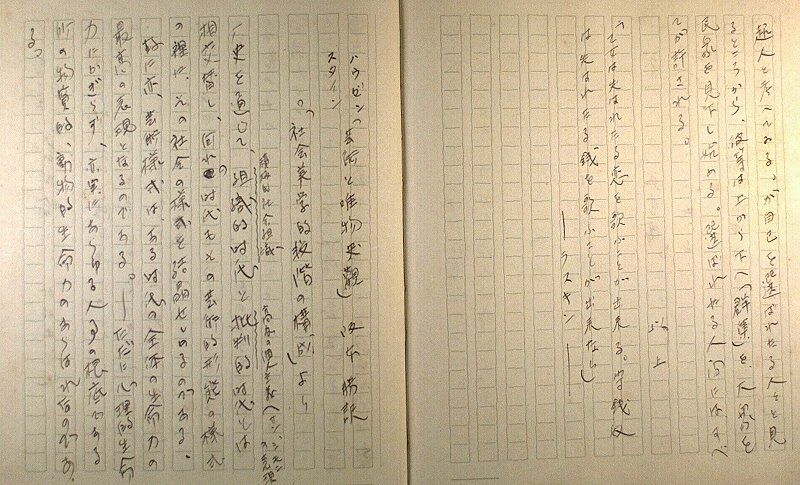 超人と考へてゐる。が自己を選ばれたる人々と見
るところから、彼等は上から下へ「群集」を、大衆を
民衆を見下し始める。選ばれたる人々にはすべ
てが許される。
以上
「乙女は失はれたる恋を歌ふことが出来る。守銭奴
は失はれたる銭を歌ふことが出来ない」
――ラスキン――
ハウゼンスタイン「芸術と唯物史観」阪本勝訳
「社会美学的段階の構成」より
人史を通して、組織的時代と批判的時代とは
組織的社会
相交替し、何れの時代もその芸術的形態の様式
の裡に、その社会の様式を結晶せしめるのである。
故に亦、芸術様式は、ある時代の全体の生命力の
最高の表現となるのである。――ただに心理的生命
力にかぎらず、亦実にあらゆる人間の根底である
所の物質的、動物的生命力のあらはれなのであ
る。